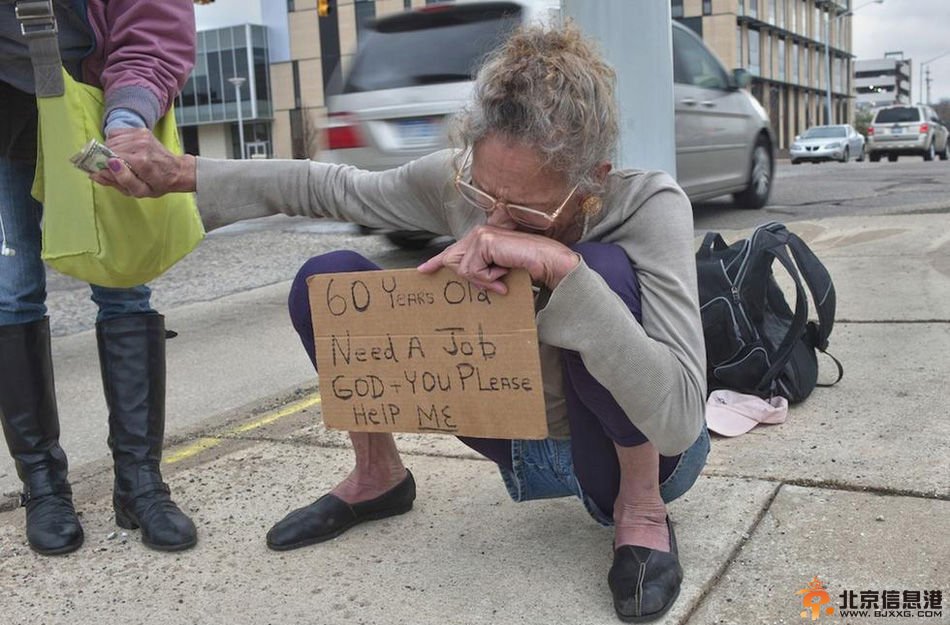 60 Years Old
Need A Job
GOD + YOU PLease
Help ME
北京信息港
WWW.BJXXG.COM